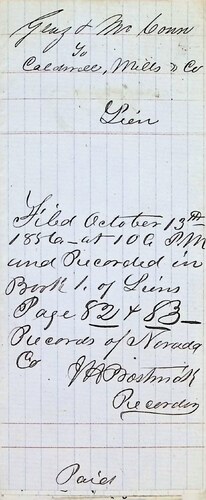 Geng & Mc Conn
To
Caldwell, Mills & Co
Lien
Filed October 13th
1856 at 10 P.M
and Recorded in
Book 1. of Liens
Page 82 & 83
Records of Nevada
Co
Bostwick
Recorder
Paid